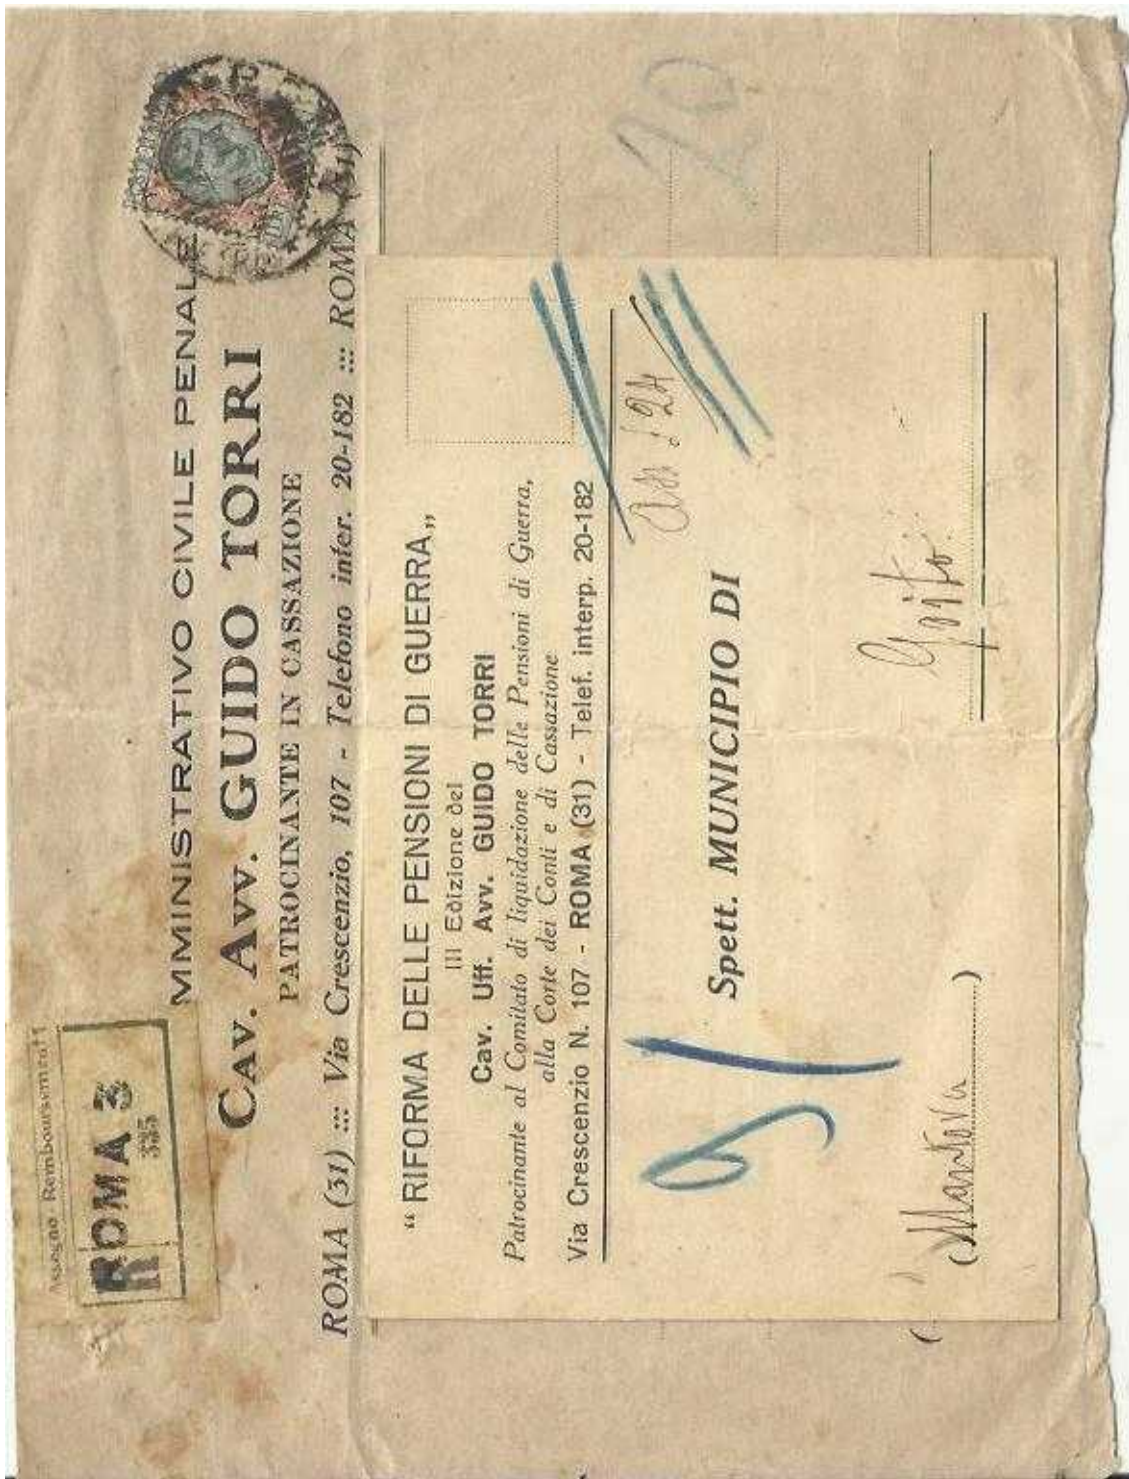 Assegno - Remboursement
ROMA 3
335
MMINISTRATIVO CIVILE PENALE
CAV. AVV. GUIDO TORRI
PATROCINANTE IN CASSAZIONE
ROMA (31) ::: Via Crescenzio, 107 - Telefono inter. 20-182 ::: ROMA (31)
20
“ RIFORMA DELLE PENSIONI DI GUERRA „
III Edizione del
Cav. Uff. Avv. GUIDO TORRI
Patrocinante al Comitato di liquidazione delle Pensioni di Guerra,
alla Corte dei Conti e di Cassazione
Via Crescenzio N. 107 - ROMA (31) - Telef. interp. 20-182
Spett. MUNICIPIO DI
Goito
(Mantova)
(